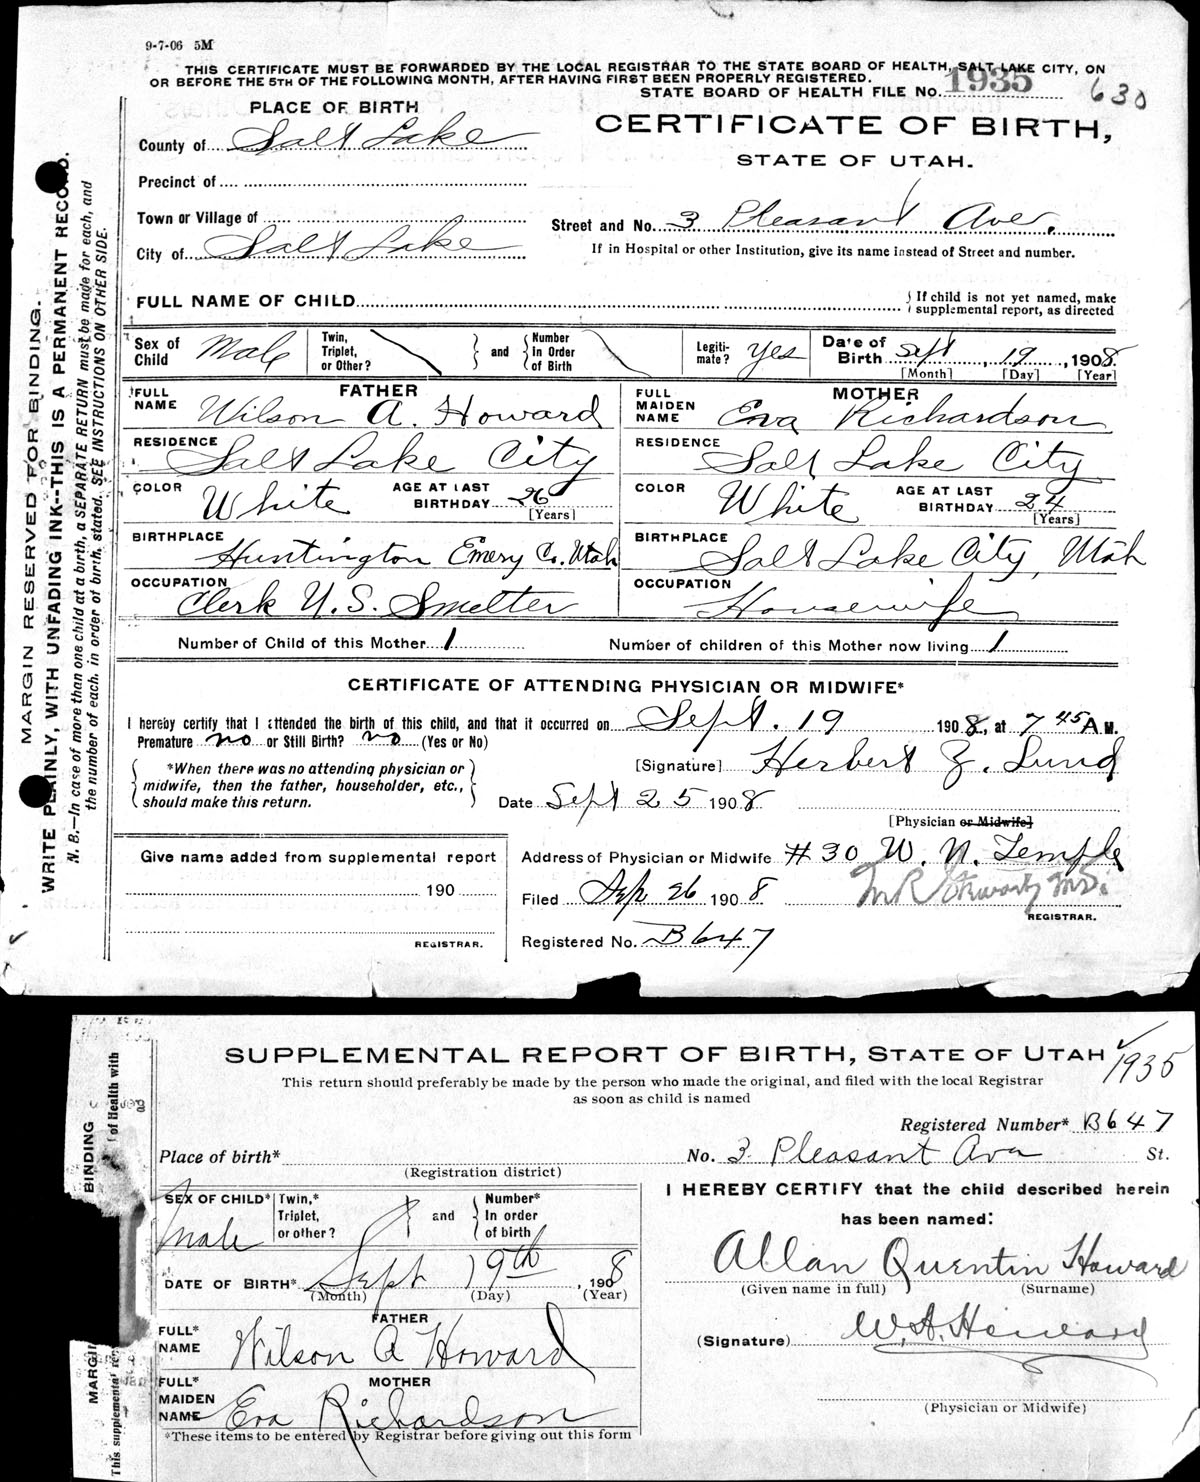 9-7-06 5M
THIS CERTIFICATE MUST BE FORWARDED BY THE LOCAL REGISTRAR TO THE STATE BOARD OF HEALTH, SALT LAKE CITY, ON
OR BEFORE THE 5TH OF THE FOLLOWING MONTH, AFTER HAVING FIRST BEEN PROPERLY REGISTERED.
STATE BOARD OF HEALTH FILE No. 1935 630
PLACE OF BIRTH
CERTIFICATE OF BIRTH,
STATE OF UTAH.
County of Salt Lake
Precinct of
Town or Village of
Street and No. 3 Pleasant Ave.
City of Salt Lake
If in Hospital or other Institution, give its name instead of Street and number.
FULL NAME OF CHILD
If child is not yet named, make
supplemental report, as directed
Sex of Child Male
Twin, Triplet, or Other?
and
Number In Order of Birth
Legiti-mate? Yes
Date of Birth Sept, 19, 1908
[Month] [Day] [Year]
FATHER
FULL NAME Wilson A. Howard
MOTHER
FULL MAIDEN NAME Eva Richardson
RESIDENCE Salt Lake City
RESIDENCE Salt Lake City
COLOR White AGE AT LAST BIRTHDAY 26 [Years]
COLOR White AGE AT LAST BIRTHDAY 24 [Years]
BIRTHPLACE Huntington Emery Co. Utah
BIRTHPLACE Salt Lake City, Utah
OCCUPATION Clerk U.S. Smelter
OCCUPATION Housewife
Number of Child of this Mother 1
Number of children of this Mother now living 1
CERTIFICATE OF ATTENDING PHYSICIAN OR MIDWIFE*
I hereby certify that I attended the birth of this child, and that it occurred on Sept. 19 1908, at 7 45 A M.
Premature no or Still Birth? no (Yes or No)
*When there was no attending physician or
midwife, then the father, householder, etc.,
should make this return.
[Signature] Herbert Z. Lund
Date Sept 25 1908
[Physician or Midwife]
Give name added from supplemental report
190
REGISTRAR.
Address of Physician or Midwife #30 W. N. Temple
Filed Sep 26 1908
REGISTRAR.
Registered No. B647
MARGIN RESERVED FOR BINDING.
WRITE PLAINLY, WITH UNFADING INK--THIS IS A PERMANENT RECORD.
N. B.—In case of more than one child at a birth, a SEPARATE RETURN must be made for each, and
the number of each, in order of birth, stated. SEE INSTRUCTIONS ON OTHER SIDE.
SUPPLEMENTAL REPORT OF BIRTH, STATE OF UTAH
1935
This return should preferably be made by the person who made the original, and filed with the local Registrar
as soon as child is named
Registered Number* B647
Place of birth*
(Registration district)
No. 3 Pleasant Ave St.
SEX OF CHILD* Male
Twin,* Triplet, or other?
and
Number* In order of birth
DATE OF BIRTH* Sept 19th, 1908
(Month) (Day) (Year)
FATHER
FULL* NAME Wilson A Howard
MOTHER
FULL* MAIDEN NAME Eva Richardson
*These items to be entered by Registrar before giving out this form
I HEREBY CERTIFY that the child described herein
has been named:
Allan Quentin Howard
(Given name in full) (Surname)
(Signature) W.A. Howard
(Physician or Midwife)
BINDING
of Health with
This supplemental